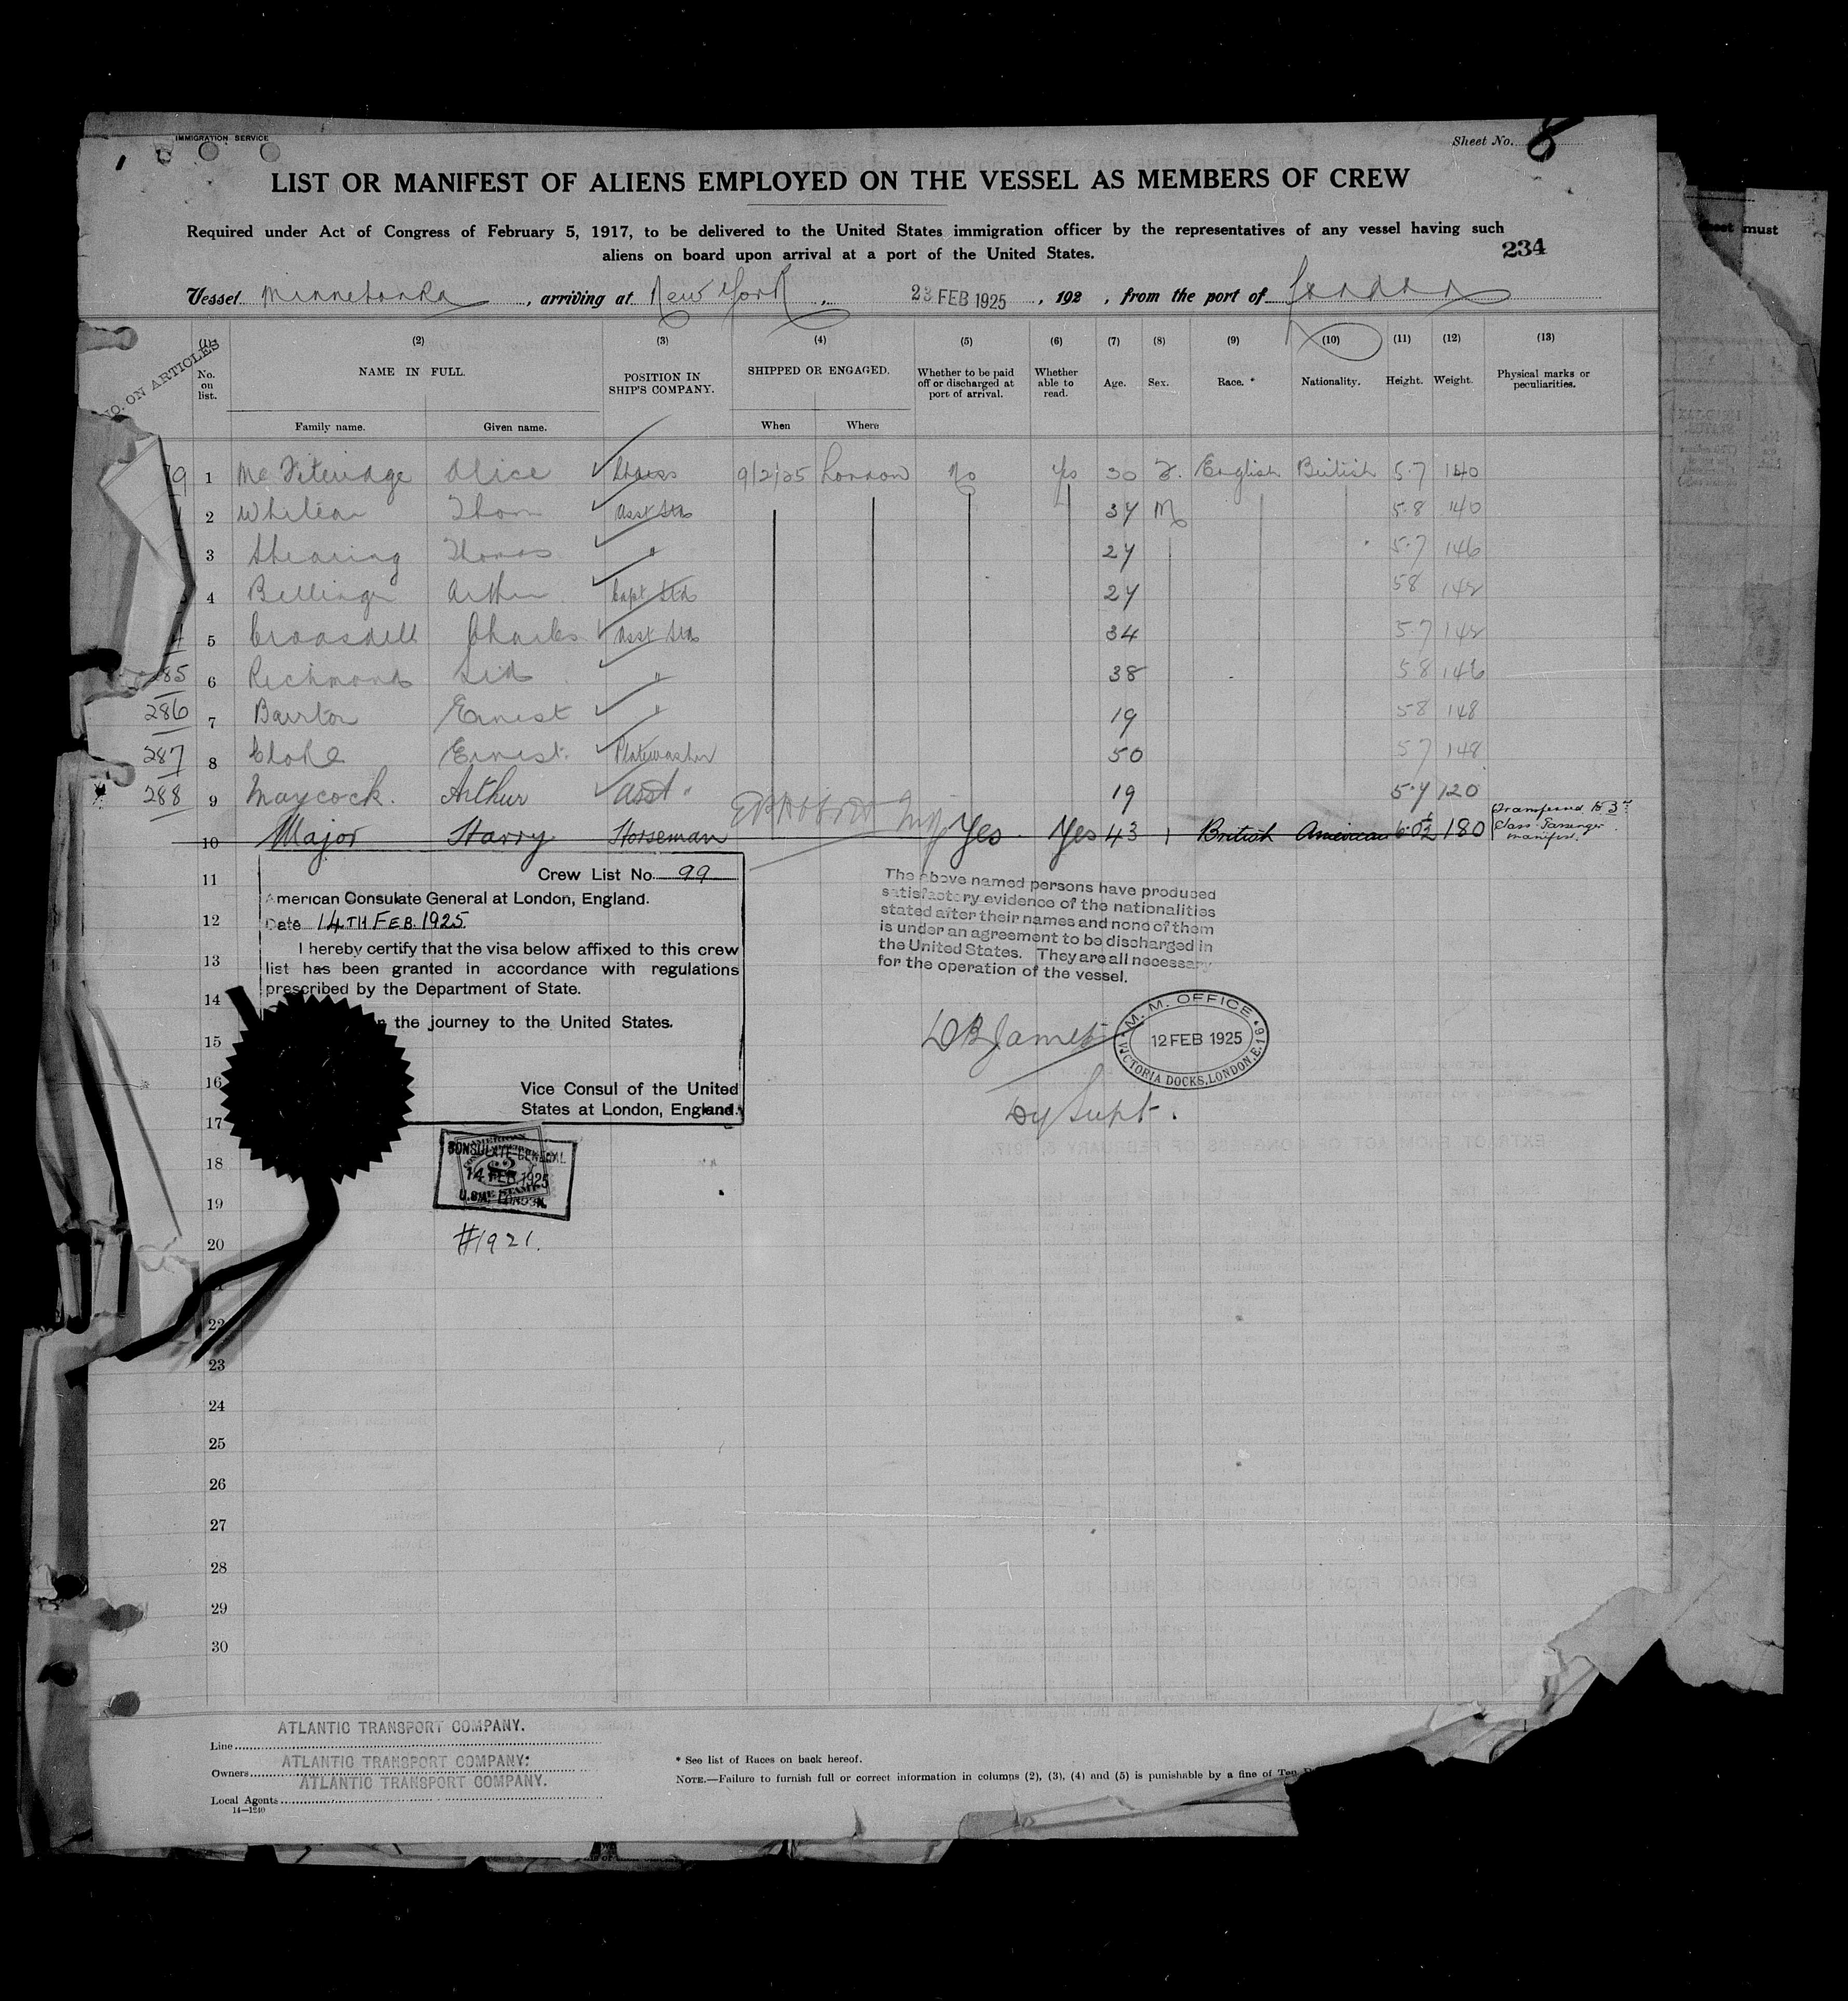 IMMIGRATION SERVICE
Sheet No. 8
LIST OR MANIFEST OF ALIENS EMPLOYED ON THE VESSEL AS MEMBERS OF CREW
Required under Act of Congress of February 5, 1917, to be delivered to the United States immigration officer by the representatives of any vessel having such
aliens on board upon arrival at a port of the United States.
234
sheet must
Vessel Minnetonka, arriving at New York, 23 FEB 1925, 192 , from the port of London
NO. ON ARTICLES
(1) (2) (3) (4) (5) (6) (7) (8) (9) (10) (11) (12) (13)
No. on list. NAME IN FULL. POSITION IN SHIP'S COMPANY. SHIPPED OR ENGAGED. Whether to be paid off or discharged at port of arrival. Whether able to read. Age. Sex. Race.* Nationality. Height. Weight. Physical marks or peculiarities.
Family name. Given name. When Where
9 1 Alice 9/2/25 London No Yes 30 F. English British 5.7 140
2 Thom Asst Std 37 M 5.8 140
3 Shearing Thomas " 27 5.7 146
4 Bellinger Arthur Capt Std 27 5 8 148
5 Croasdell Charles Asst Std 34 5.7 148
85 6 Richmond Sid " 38 5 8 146
286 7 Ernest " 19 5 8 148
287 8 Cloke Ernest. Platewasher 50 5 7 148
288 9 Maycock. Arthur Asst " 19 5.7 120
10 Major Harry Horseman Yes. Yes 43 British American 6.0½ 180 Transferred to 3rd
Class Passenger
manifest.
11
12
13
14
15
16
17
18
19
20
22
23
24
25
26
27
28
29
30
Crew List No. 99
American Consulate General at London, England.
Date 14TH FEB. 1925.
I hereby certify that the visa below affixed to this crew
list has been granted in accordance with regulations
prescribed by the Department of State.
the journey to the United States.
Vice Consul of the United
States at London, England.
AMERICAN
CONSULATE GENERAL
14 FEB 1925
LONDON
#1921.
The above named persons have produced
satisfactory evidence of the nationalities
stated after their names and none of them
is under an agreement to be discharged in
the United States. They are all necessary
for the operation of the vessel.
James
M. M. OFFICE
12 FEB 1925
VICTORIA DOCKS, LONDON, E.16
Dy Supt.
Line ATLANTIC TRANSPORT COMPANY.
Owners ATLANTIC TRANSPORT COMPANY.
Local Agents ATLANTIC TRANSPORT COMPANY.
14—1240
* See list of Races on back hereof.
NOTE.—Failure to furnish full or correct information in columns (2), (3), (4) and (5) is punishable by a fine of Ten